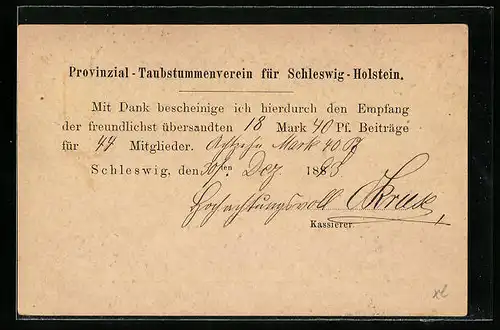 Provinzial-Taubstummenverein für Schleswig-Holstein.
Mit Dank bescheinige ich hierdurch den Empfang
der freundlichst übersandten 18 Mark 40 Pf. Beiträge
für 44 Mitglieder. Achtzehn Mark 40 Pf
Schleswig, den 30ten Dez 1888.
Hochachtungsvoll
Kassierer.